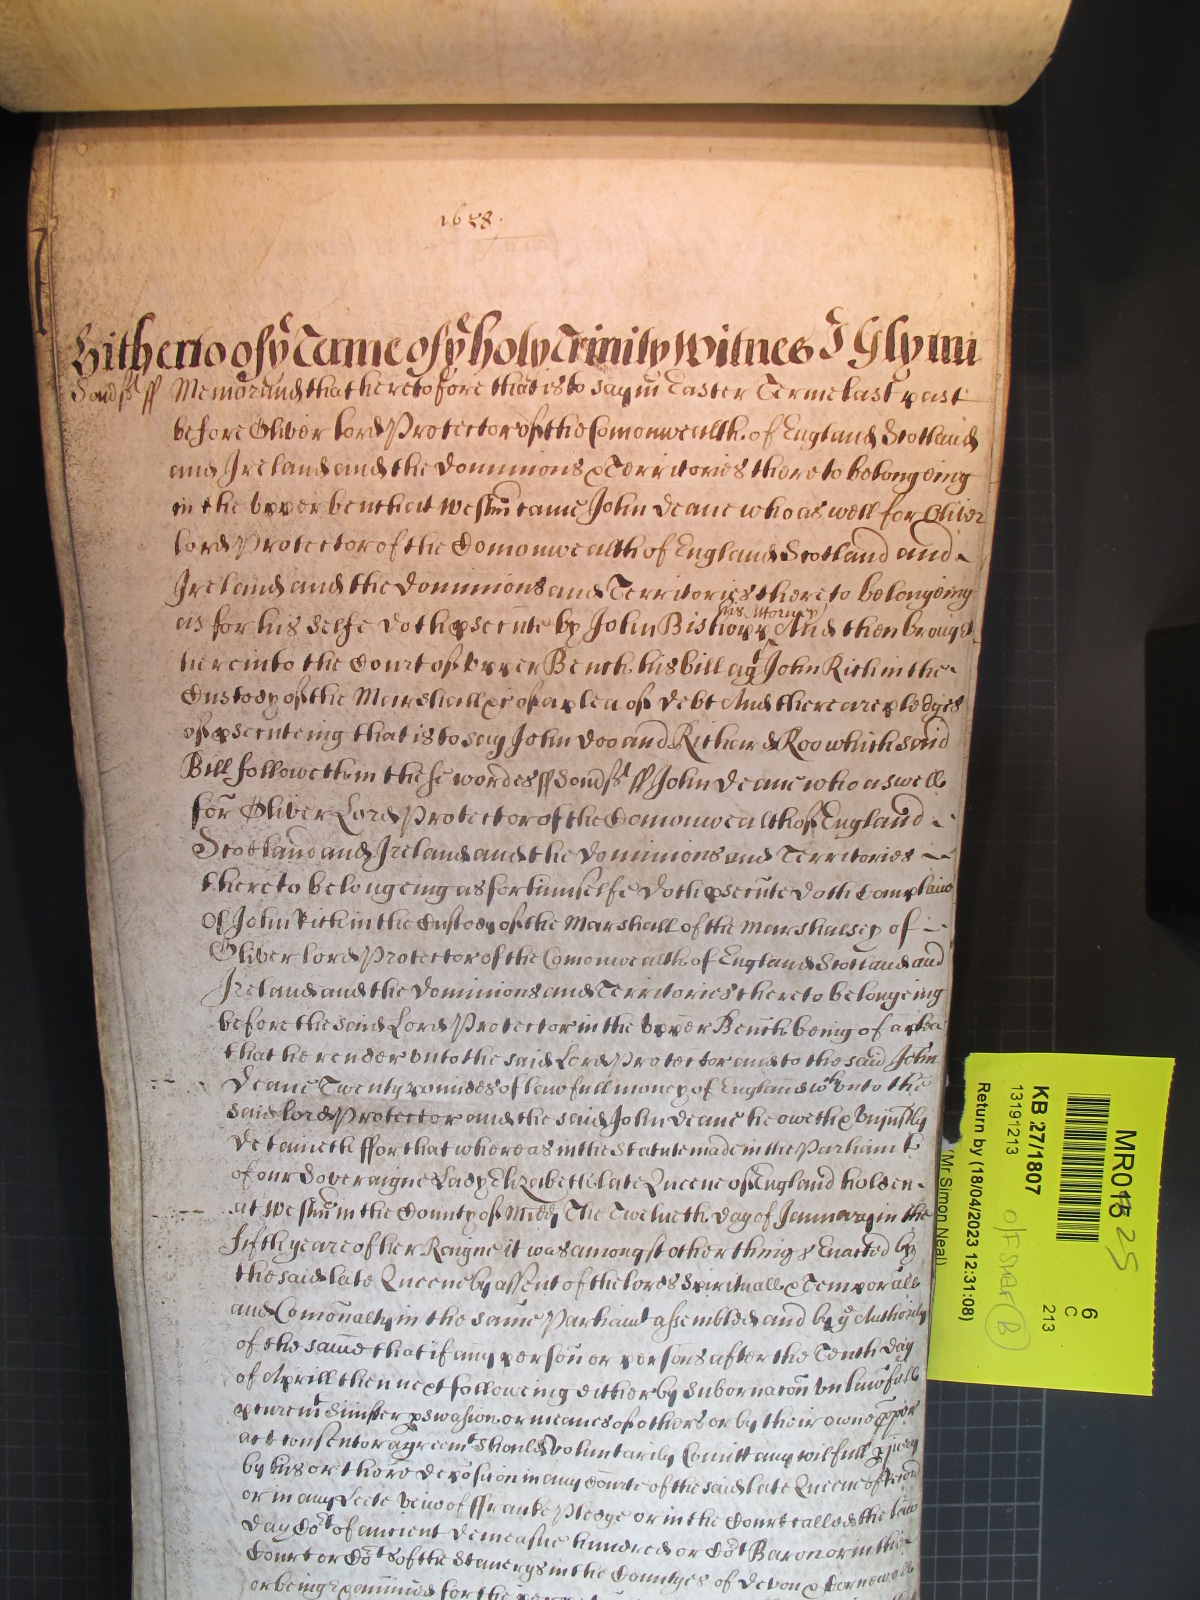 1658.
Hitherto of yᵉ Terme of yᵉ holy Trinity Witnes J Glynn
Memorand that heretofore that is to say in Easter Terme last past
before Oliver Lord Protector of the Comonwealth of England Scotland
and Ireland and the Dominions & Territories thereto belongeing
in the Upper bench at Westm came John Deane who as well for Oliver
Lord Protector of the Comonwealth of England Scotland and
Ireland and the Dominions and Territories thereto belongeing
his Attorney
as for his selfe doth psecute by John Bishopp And then brought
here into the Court of Upper Bench his bill agᵗ John Rich in the
Custody of the Marshall &c of a plea of Debt And there are pledges
of psecuteing that is to say John Doo and Richard Roo which said
Bill followeth in these wordes ss Londss ss John Deane who aswell
for Oliver Lord Protector of the Comonwealth of England
Scotland and Ireland and the Dominions and Territories
thereto belongeing as for himselfe doth psecute doth Complaine
of John Rich in the Custody of the Marshall of the Marshalsey of
Oliver Lord Protector of the Comonwealth of England Scotland and
Ireland and the Dominions and Territories thereto belongeing
before the said Lord Protector in the Upper Bench being of a plea
that he render unto the said Lord Protector and to the said John
Deane Twenty poundes of lawfull money of England wᶜʰ unto the
said Lord Protector and the said John Deane he oweth & Unjustly
detaineth ffor that whereas in the Statute made in the Parliamᵗ
of our Soveraigne Lady Elizabeth late Queene of England holden
at Westm in the County of Midd The Twelueth day of January in the
fifth yeare of her Raigne it was amongst other things Enacted by
the said late Queene by assent of the lordes Spirituall & Temporall
and Comonalty in the same Parliamᵗ assembled and by yᵉ Authority
of the same that if any person or persons after the Tenth day
of Aprill then next following either by Subornacon Unlawfull
pcuremᵗ Sinister pswasion or meanes of others or by their owne
act consent or agreemᵗ should voluntarily Comitt any wilfull pjury
by his or there deposicion in any Courte of the said late Queene of Record
or in any Leete veiw of ffranke Pledge or in the Court called the law
day Coᵗ of ancient demeasne hundred or Coᵗ Baron or in the
Court or Coᵗˢ of the Stanerys in the Countyes of Devon & Cornewall
or being Examined for the
MR01825
6
C
213
KB 27/1807
13191213
Return by (18/04/2023 12:31:08)
(Mr Simon Neal)